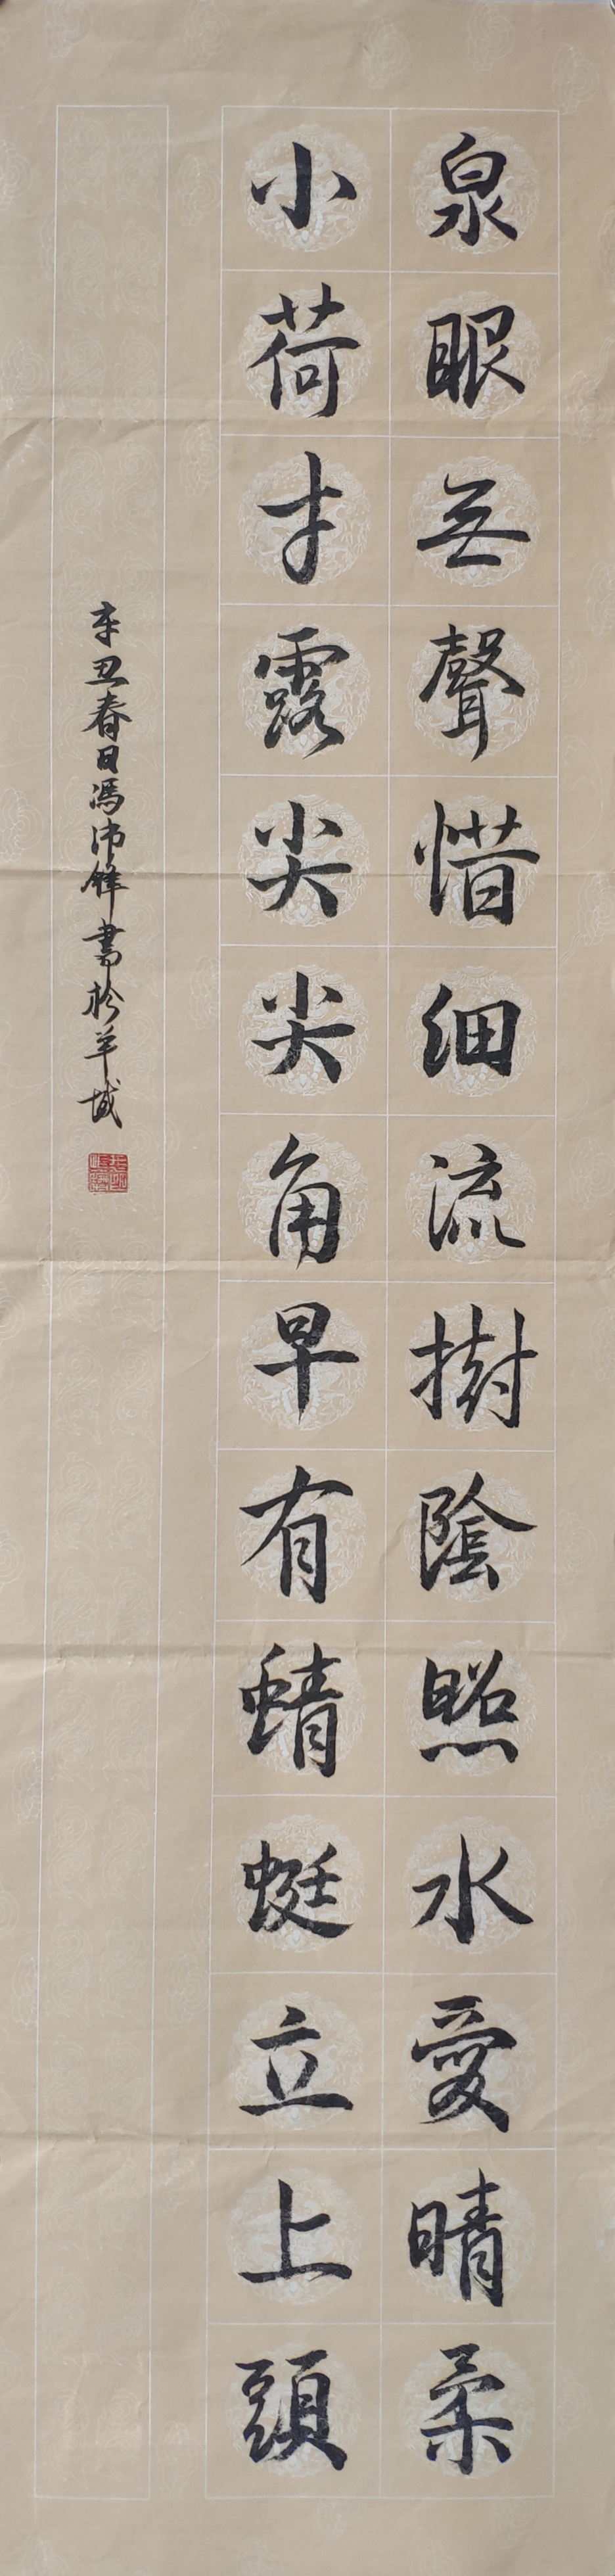 泉眼无聲惜细流樹陰照水愛晴柔
小荷才露尖尖角早有蜻蜓立上頭
辛丑春日馮沛鋒書於羊城